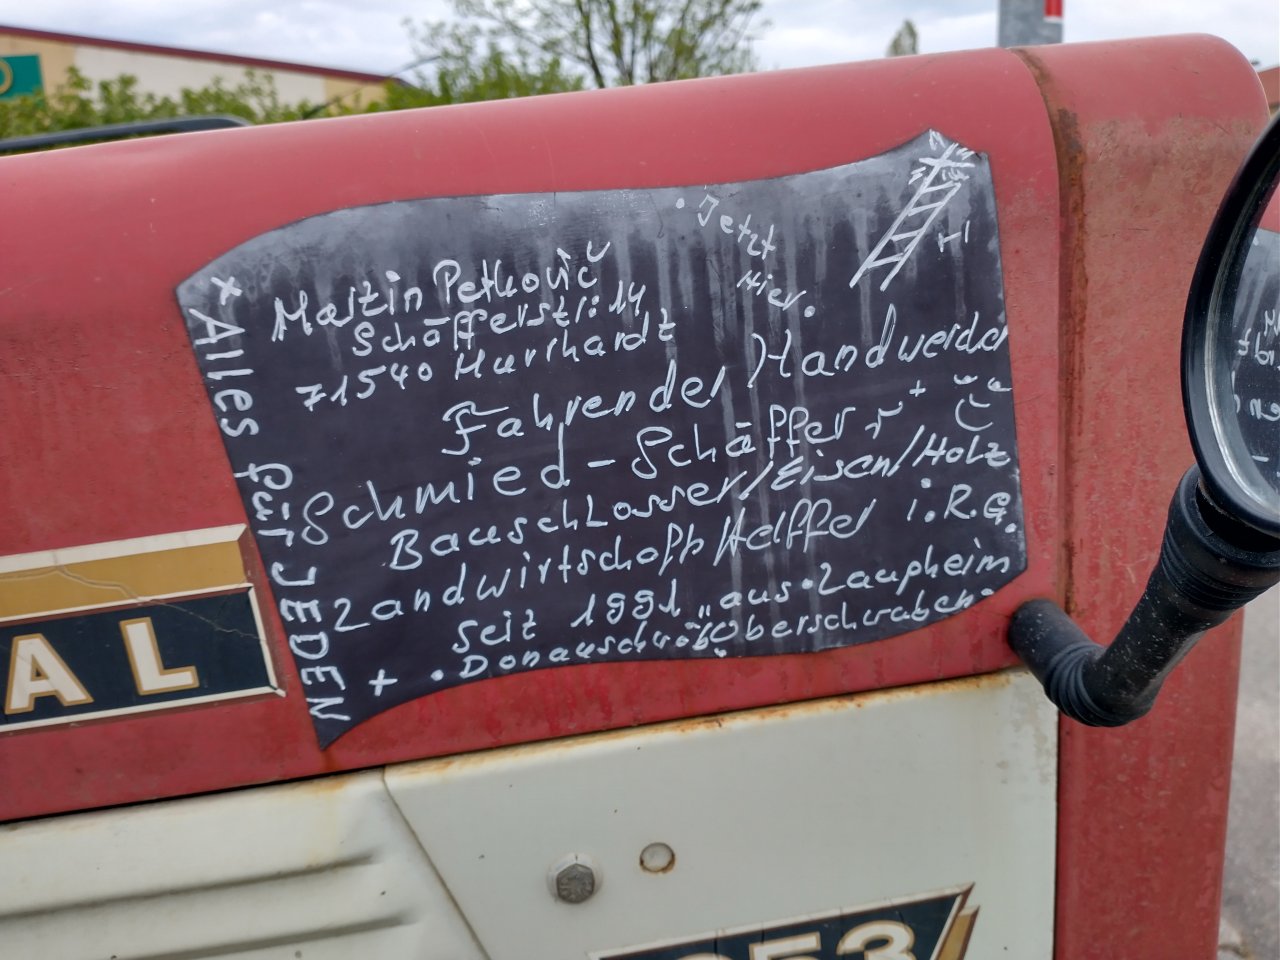 • Jetzt
Hier.
Martin Petkovič
Schäfferstr: 14
71540 Murrhardt
Fahrender Handwerker
Schmied - Schäffer
Bauschlosser/Eisen/Holz
Landwirtschaft Helffer i.R.G.
Seit 1991 „aus Laupheim
• Donauschwäb. Oberschwaben •
x Alles für JEDEN +
AL
353